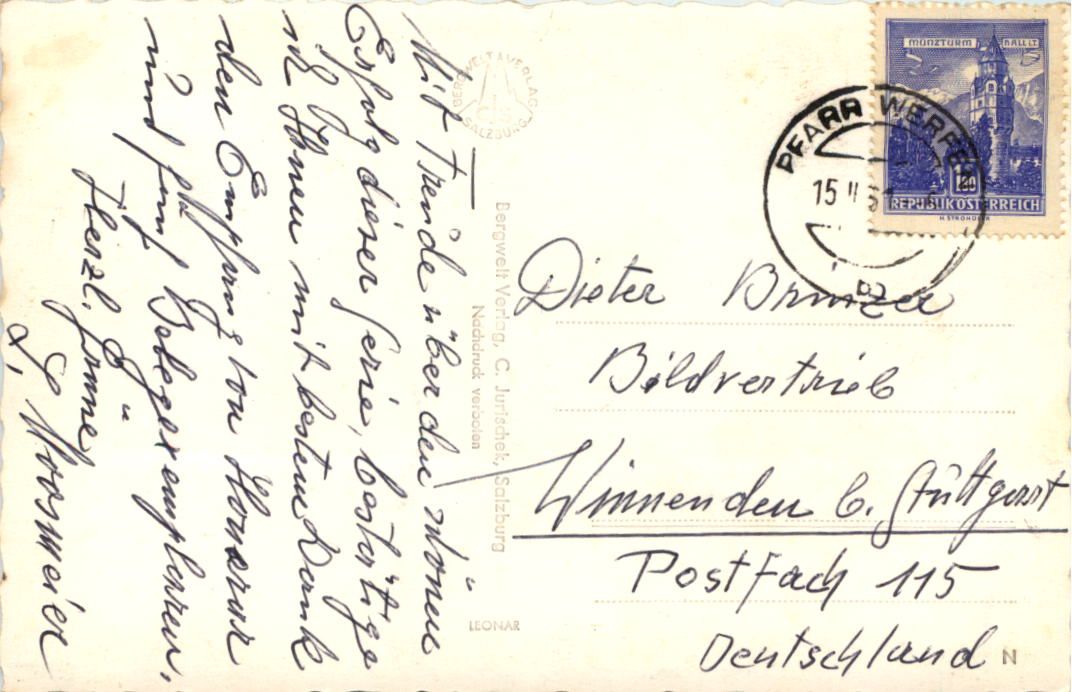 Mit Freude über den schönen
Erfolg dieser Serie, bestätige
ich Ihnen mit bestem Dank
den Empfang von Honorar
und fünf Belegexemplaren,
Herzl. Grüße
Moosmeier
BERGWELT VERLAG
SALZBURG
Bergwelt Verlag, C. Jurischek, Salzburg
Nachdruck verboten
LEONAR
MÜNZTURM HALL I.T.
1.80
REPUBLIK ÖSTERREICH
H. STROHOFER
PFARR WERFEN
15 II
Dieter Brinzer
Bildvertrieb
Winnenden b. Stuttgart
Postfach 115
Deutschland
N